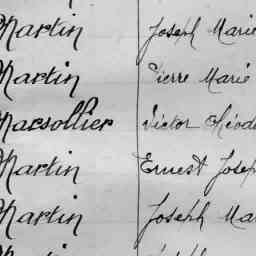 Martin Joseph Marie
Martin Pierre Marie
Marsollier Victor Théod
Martin Ernest Josep
Martin Joseph Mar